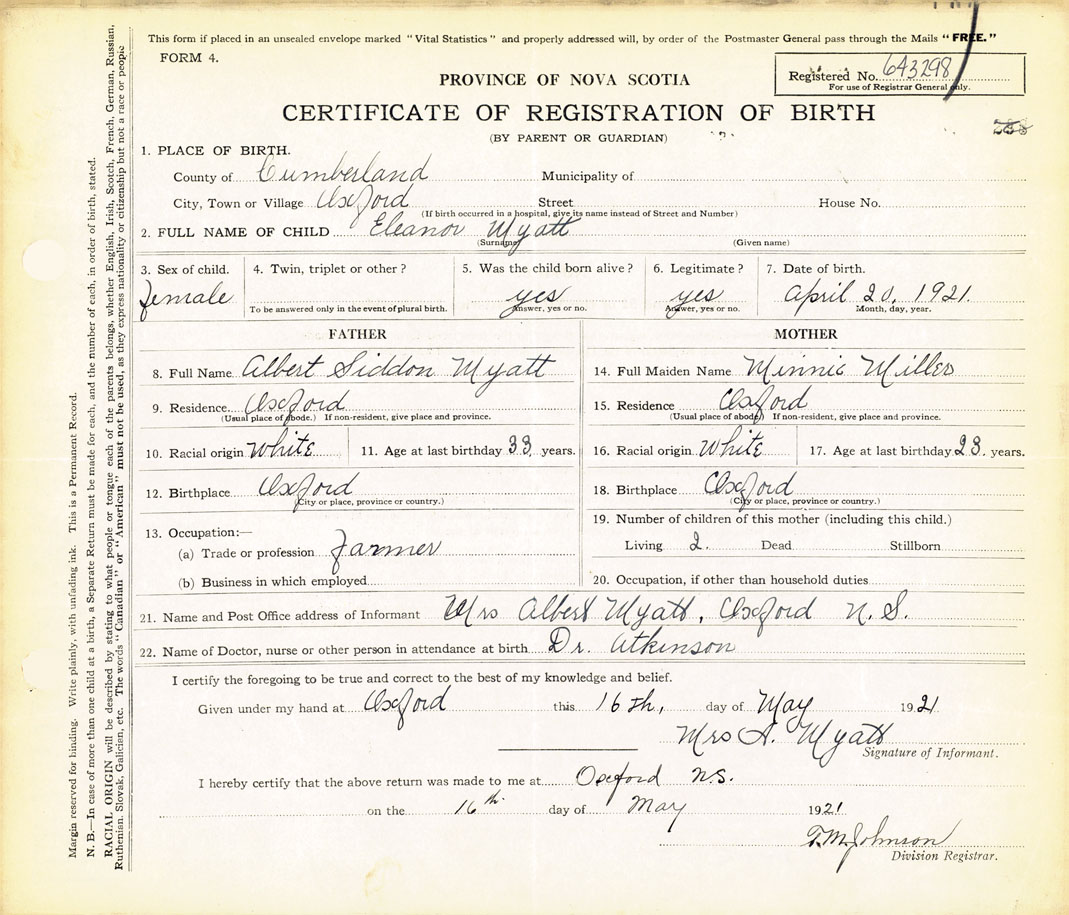 This form if placed in an unsealed envelope marked "Vital Statistics" and properly addressed will, by order of the Postmaster General pass through the Mails "FREE."
FORM 4.
Registered No. 643298
For use of Registrar General only.
PROVINCE OF NOVA SCOTIA
CERTIFICATE OF REGISTRATION OF BIRTH
(BY PARENT OR GUARDIAN)
1. PLACE OF BIRTH.
County of Cumberland Municipality of
City, Town or Village Oxford Street House No.
(If birth occurred in a hospital, give its name instead of Street and Number)
2. FULL NAME OF CHILD Eleanor Myatt
(Surname) (Given name)
3. Sex of child. 4. Twin, triplet or other? 5. Was the child born alive? 6. Legitimate? 7. Date of birth.
female yes yes April 20, 1921.
To be answered only in the event of plural birth. Answer, yes or no. Answer, yes or no. Month, day, year.
FATHER
8. Full Name Albert Siddon Myatt
9. Residence Oxford
(Usual place of abode.) If non-resident, give place and province.
10. Racial origin White 11. Age at last birthday 33 years.
12. Birthplace Oxford
(City or place, province or country.)
13. Occupation:—
(a) Trade or profession Farmer
(b) Business in which employed
MOTHER
14. Full Maiden Name Minnie Miller
15. Residence Oxford
(Usual place of abode) If non-resident, give place and province.
16. Racial origin White 17. Age at last birthday 23. years.
18. Birthplace Oxford
(City or place, province or country.)
19. Number of children of this mother (including this child.)
Living 2. Dead Stillborn
20. Occupation, if other than household duties
21. Name and Post Office address of Informant Mrs Albert Myatt, Oxford N.S.
22. Name of Doctor, nurse or other person in attendance at birth Dr. Atkinson
I certify the foregoing to be true and correct to the best of my knowledge and belief.
Given under my hand at Oxford this 16th, day of May 1921
Mrs A. Myatt
Signature of Informant.
I hereby certify that the above return was made to me at Oxford N.S.
on the 16th day of May 1921
T.M. Johnson
Division Registrar.
Margin reserved for binding. Write plainly, with unfading ink. This is a Permanent Record.
N. B.—In case of more than one child at a birth, a Separate Return must be made for each, and the number of each, in order of birth, stated.
RACIAL ORIGIN will be described by stating to what people or tongue each of the parents belongs, whether English, Irish, Scotch, French, German, Russian,
Ruthenian, Slovak, Galician, etc. The words "Canadian" or "American" must not be used, as they express nationality or citizenship but not a race or people